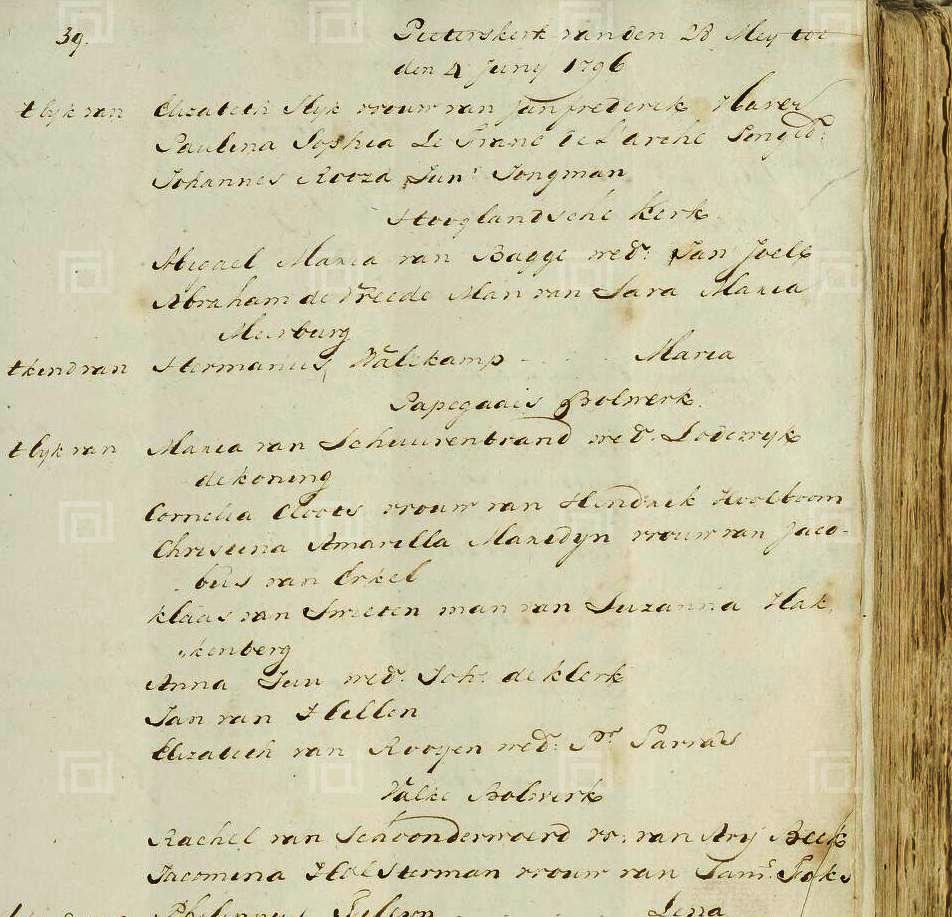 39. Pieterskerk van den 28 Mey tot
den 4 Juny 1796
t lyk van Elizabeth Slyk vrouw van Jan frederik Haver
Paulina Sophia Le Franc de L'arche Jongd:
Johannes Rooza Junr Jongman
Hooglandsche Kerk
Abigael Maria van Bagge wedr: Jan Joell
Abraham de Vreede Man van Sara Maria
Meerburg
t kind van Hermanus Valkkamp - - - Maria
Papegaais Bolwerk.
t lyk van Maria van Schuurenbrand wedr: Lodewyk
de koning
Cornelia Cloots vrouw van Hendrik Hoolboom
Christina Amarilla Maredyn vrouw van Jaco-
bus van Erkel
klaas van Smeten man van Suzanna Hak
kenberg
Anna Juu wedr: Johs: de klerk
Jan van Hellen
Elizabeth van Rooyen wedr: Pr Parrads
Valke Bolwerk
Rachel van Schoonderwoerd vr: van Ary Beek
Jacomina Holsterman vrouw van Saml: Foks
Philippus Lena